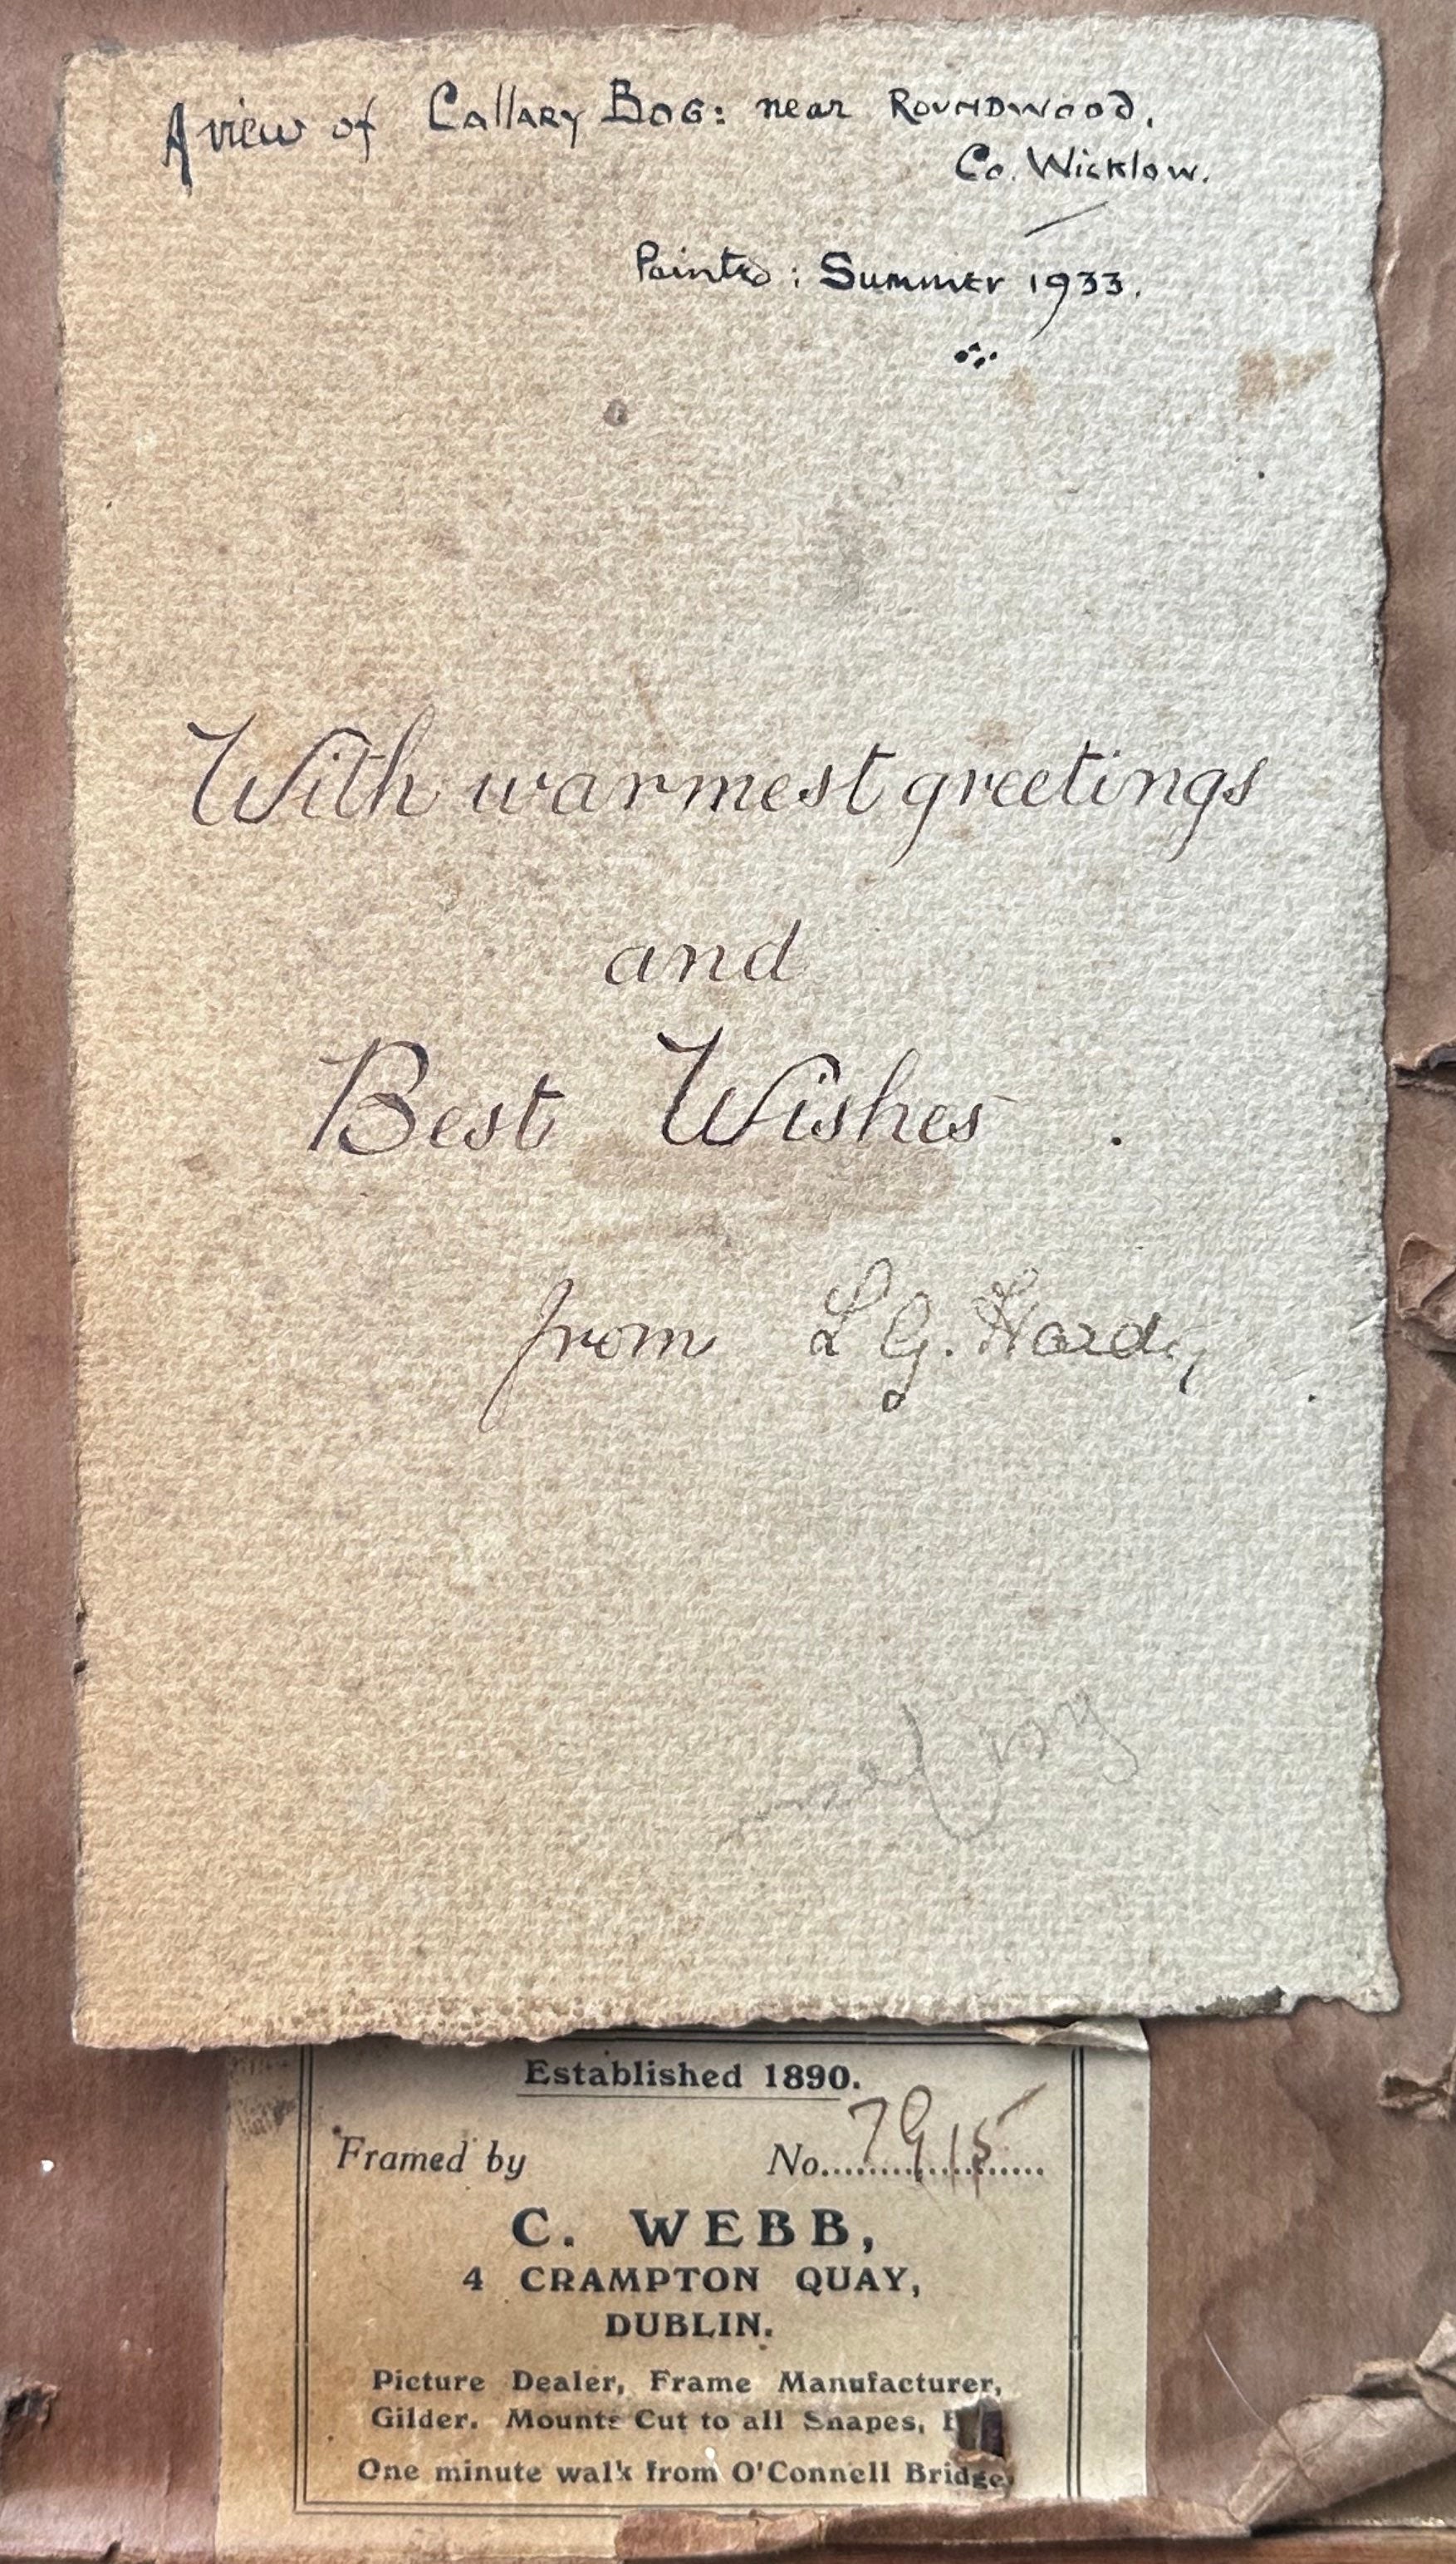 A view of Callary Bog: near Roundwood,
Co. Wicklow.
Painted: Summer 1933.
With warmest greetings
and
Best Wishes.
from L G. Hardy
Established 1890.
Framed by No. 7915
C. WEBB,
4 CRAMPTON QUAY,
DUBLIN.
Picture Dealer, Frame Manufacturer,
Gilder. Mounts Cut to all Shapes,
One minute walk from O'Connell Bridge,